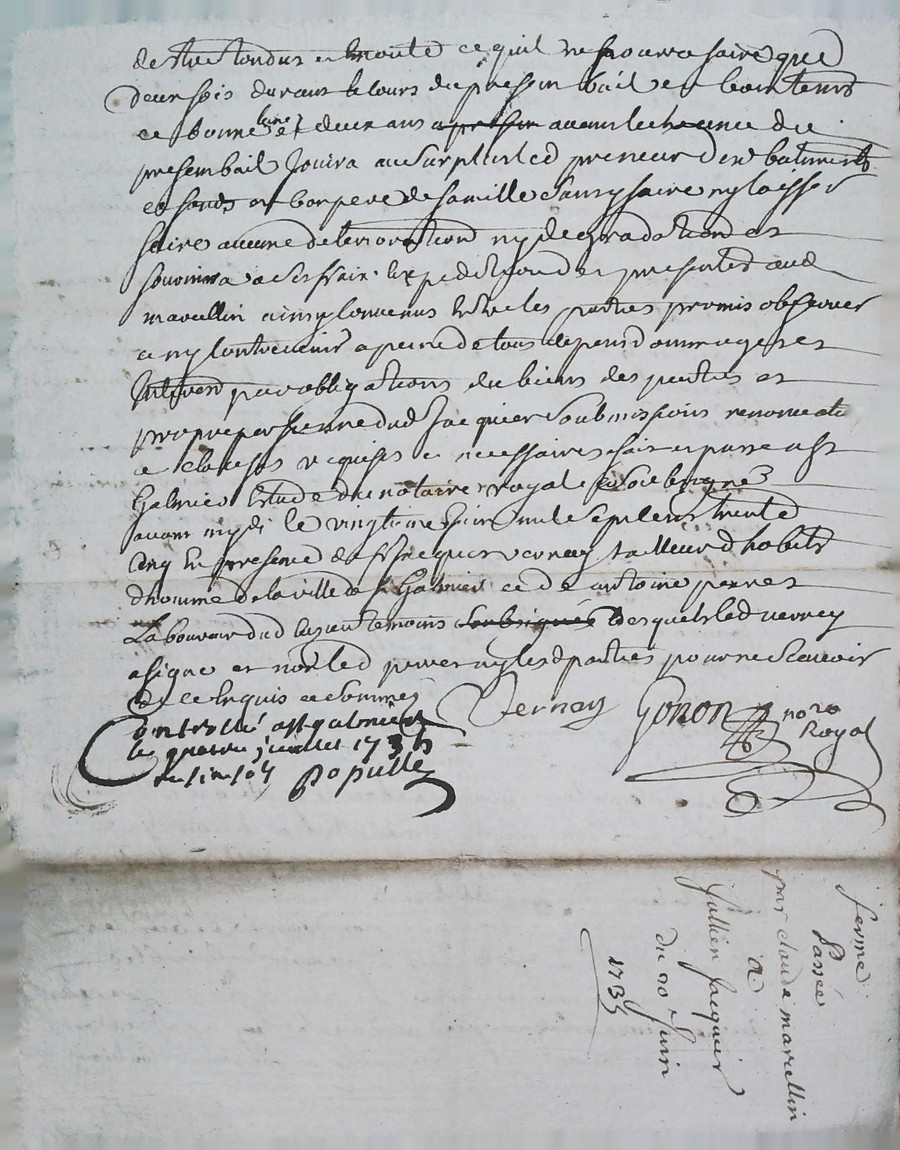 de ce quil ne pourra faire que
deux fois durant le cours du present bail et
ce bonne lune et deux ans avant lecheance du
present bail Jouira au surplus led preneur desd batiments
et fonds en bon pere de famille sans y faire ny laisser
faire aucune deterioration ny degradation et
fournira a ses frais expedition des presentes aud
marcellin ainsy convenus entre les parties promis observer
et ny contrevenir a peine de tous depens dommages et
Interest par obligations du biens des parties et
propre personne dud Jacquier soubmissions renonciation
et clauses requises et necessaires fait et passe a st
Galmier Etude du notaire royal soubsigné
avant midy le vingtieme Juin mil sept cent trente
cinq En presence de Jacques verney tailleur dhabits
dhomme de la ville de st Galmier et de antoine perret
Laboureur dud temoins soubsignés desquels led verney
a signé et non led perret ny lesd parties pour ne scavoir
de ce Enquis et sommés
Vernay Gonon nore
Royal
Controllé a st galmier
le quatre juillet 1735
Populle
ferme
Passée
par claude marcellin
a
Jullien Jacquier
du 20 Juin
1735